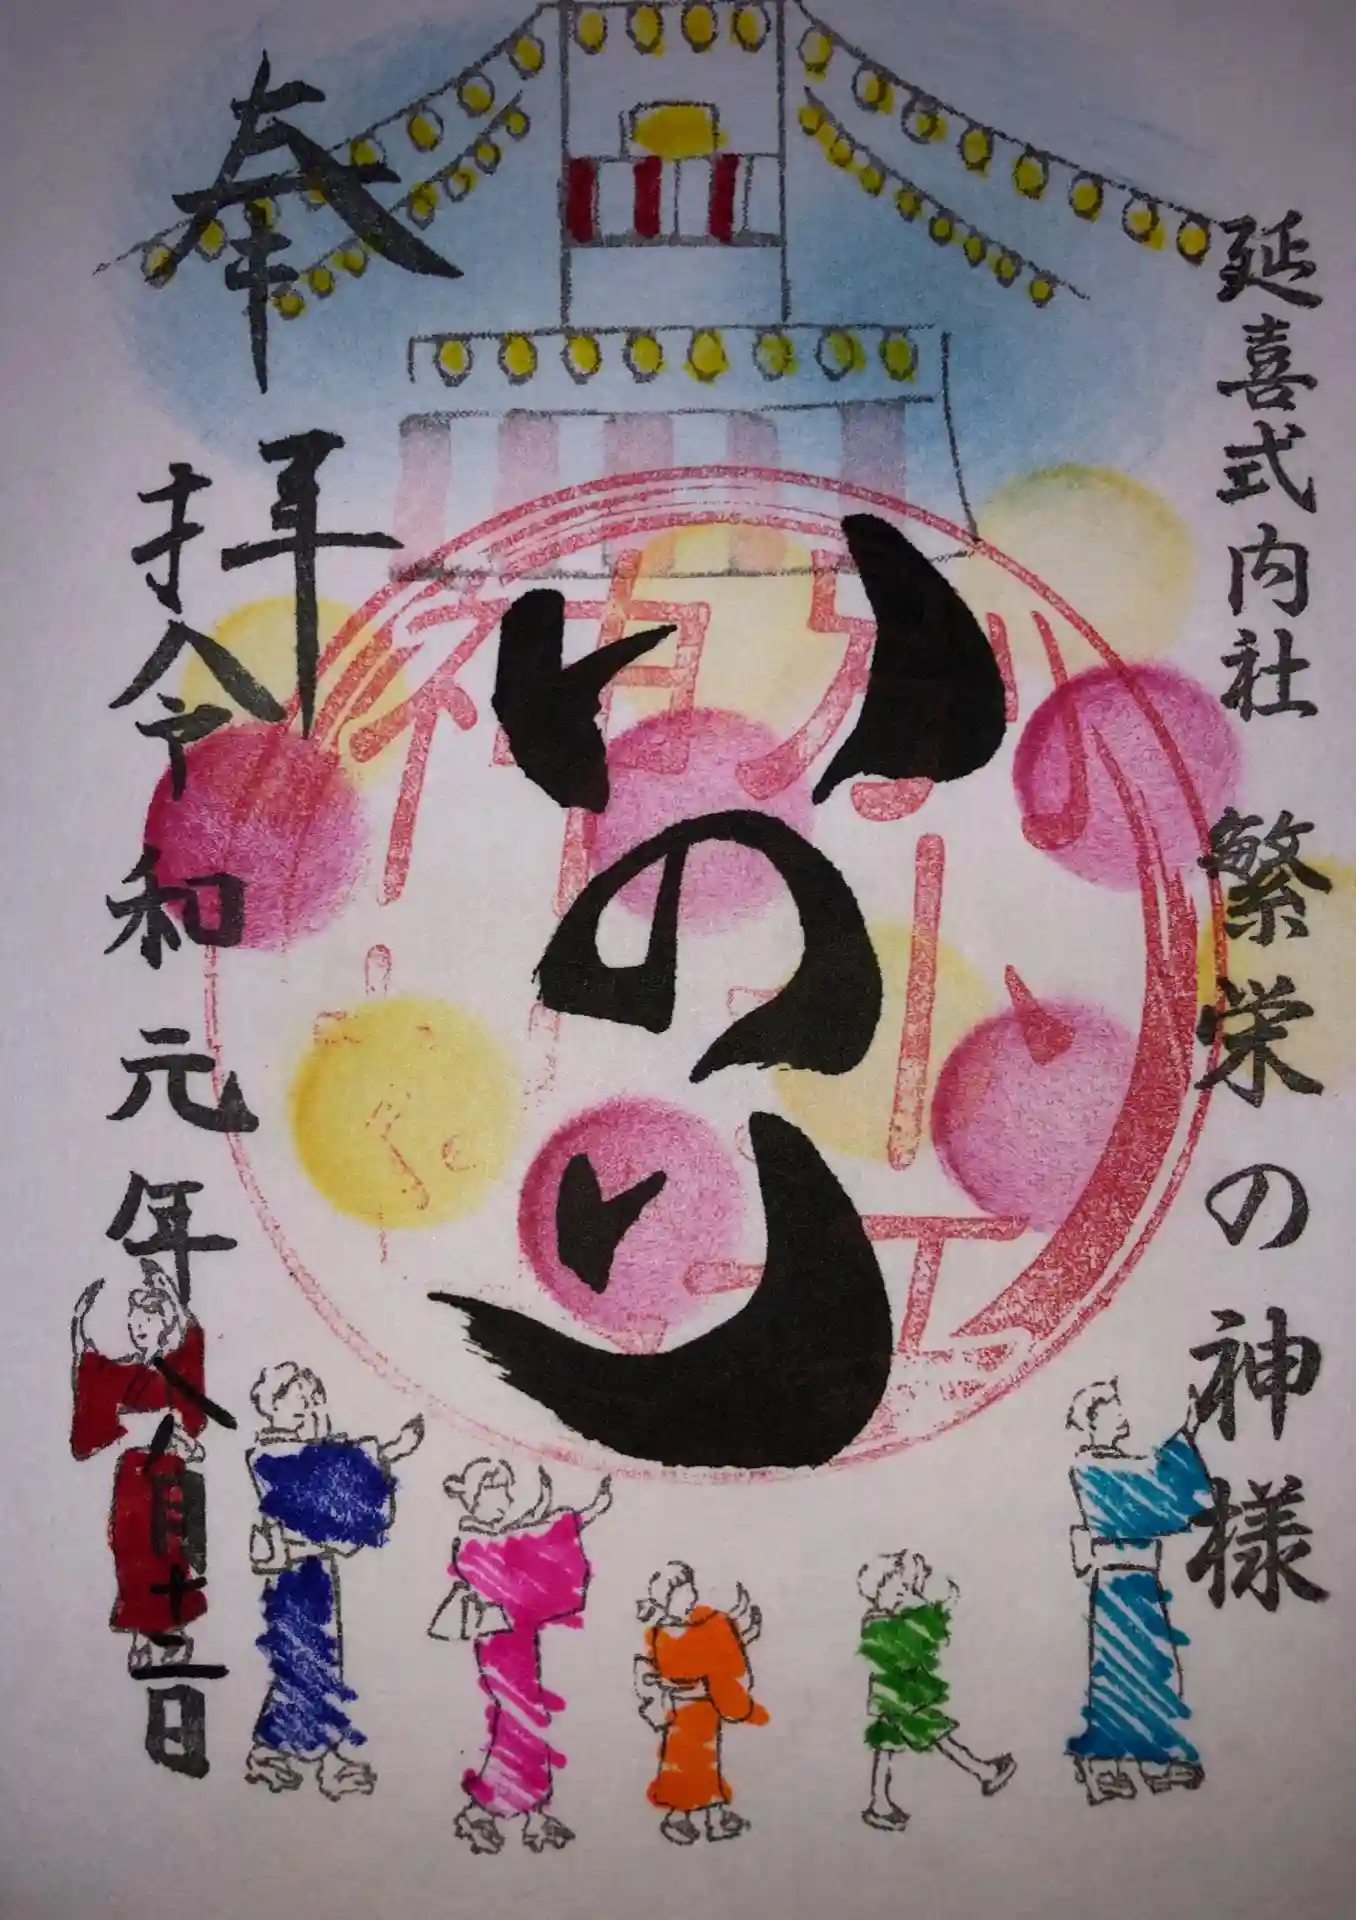 延喜式内社 繁栄の神様
いのり
奉拝
令和元年八月十二日